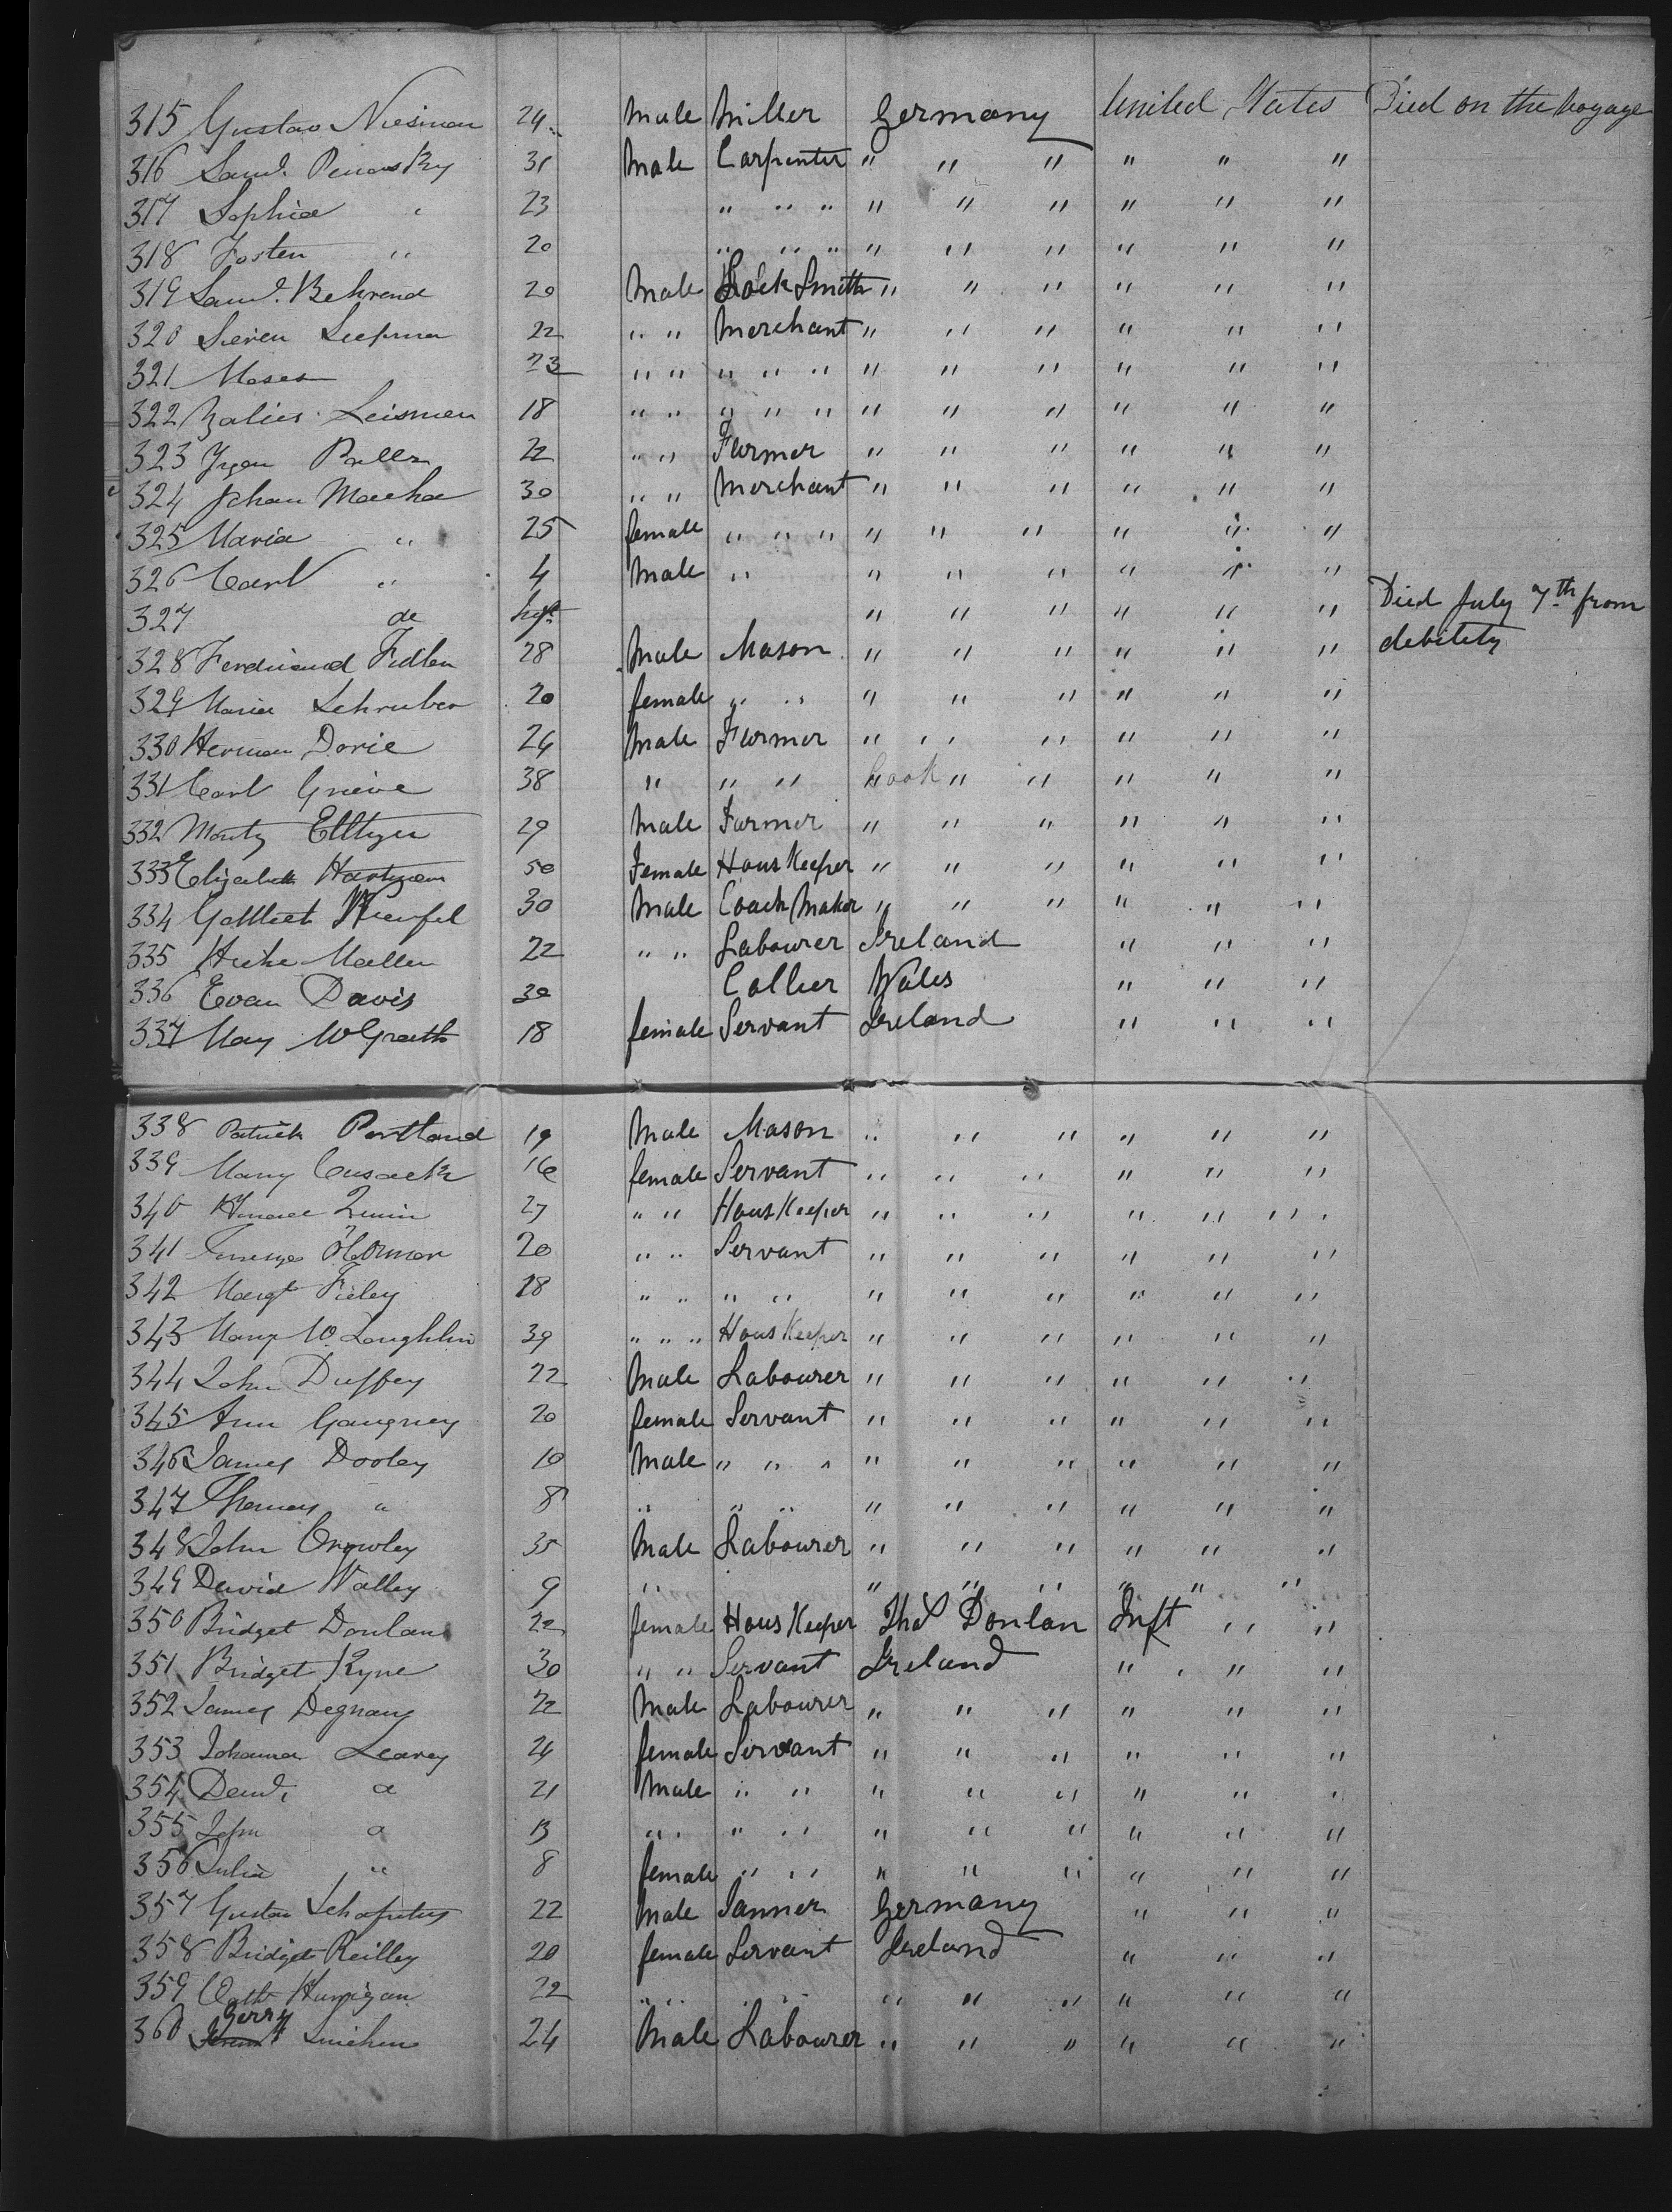 315 Gustav Niesman 24 Male Miller Germany United States Died on the Voyage
316 Saml. 31 Male Carpenter " " " " " "
317 Sophia " 23 " " " " " " " " "
318 Josten " 20 " " " " " " " " "
319 Saml. Behrend 20 Male Lock Smith " " " " " "
320 Seren Leepman 22 " " Merchant " " " " " "
321 Moses 23 " " " " " " " " " " "
322 Leisman 18 " " " " " " " " " " "
323 22 " " Farmer " " " " " "
324 Johan Macha 30 " " Merchant " " " " " "
325 Maria " 25 female " " " " " " " " "
326 Carl " 4 Male " " " " " " "
327 do Inft " " " " " " Died July 7th from
328 Ferdinand Fidlen 28 Male Mason " " " " " " debility
329 Maria Schruber 20 female " " " " " " " "
330 Herman Dorie 24 Male Farmer " " " " " "
331 Carl Grieve 38 " " " Cook " " " " "
332 Montz 29 Male Farmer " " " " " "
333 Elizabeth Hartman 50 Female Hous Keeper " " " " " "
334 Gottliet 30 Male Coach Maker " " " " " "
335 22 " " Labourer Ireland " " "
336 Evan Davis 30 Collier Wales " " "
337 May McGrath 18 female Servant Ireland " " "
338 Patrick Portland 19 Male Mason " " " " " "
339 Mary Cusack 16 female Servant " " " " " "
340 27 " " Hous Keeper " " " " " "
341 O'Connor 20 " " Servant " " " " " "
342 Margt 18 " " " " " " " " " "
343 Mary Mc Loughlin 39 " " " Hous Keeper " " " " " "
344 John Duffey 22 Male Labourer " " " " " "
345 Ann Gaugney 20 female Servant " " " " " "
346 James Dooley 10 Male " " " " " " " " "
347 Thomas " 8 " " " " " " " " "
348 John Crowley 35 Male Labourer " " " " " "
349 David Walley 9 " " " " " " "
350 Bridget Donlan 22 female Hous Keeper Thos Donlan Inft " "
351 Bridget Ryne 30 " " Servant Ireland " " "
352 James Degnang 22 Male Labourer " " " " " "
353 Johanna Learey 24 female Servant " " " " " "
354 " 21 Male " " " " " " " "
355 John " 13 " " " " " " " " "
356 Julia " 8 female " " " " " " " "
357 Gustav 22 Male Tanner Germany " " "
358 Bridget Reilley 20 female Servant Ireland " " "
359 Cath Harrigan 22 " " " " " " " " " "
360 Gerry 24 Male Labourer " " " " " "